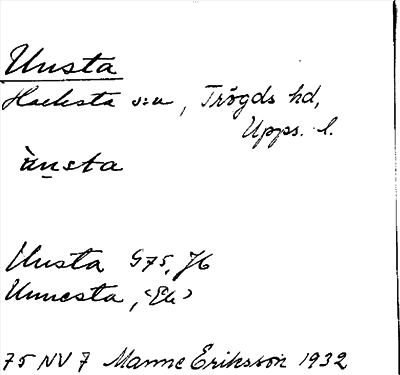 Unsta
Hacksta sn, Trögds hd,
Upps. l.
ùnsta
Unsta G75, Jb
Unnesta, (Ek)
75 NV 7 Manne Eriksson 1932